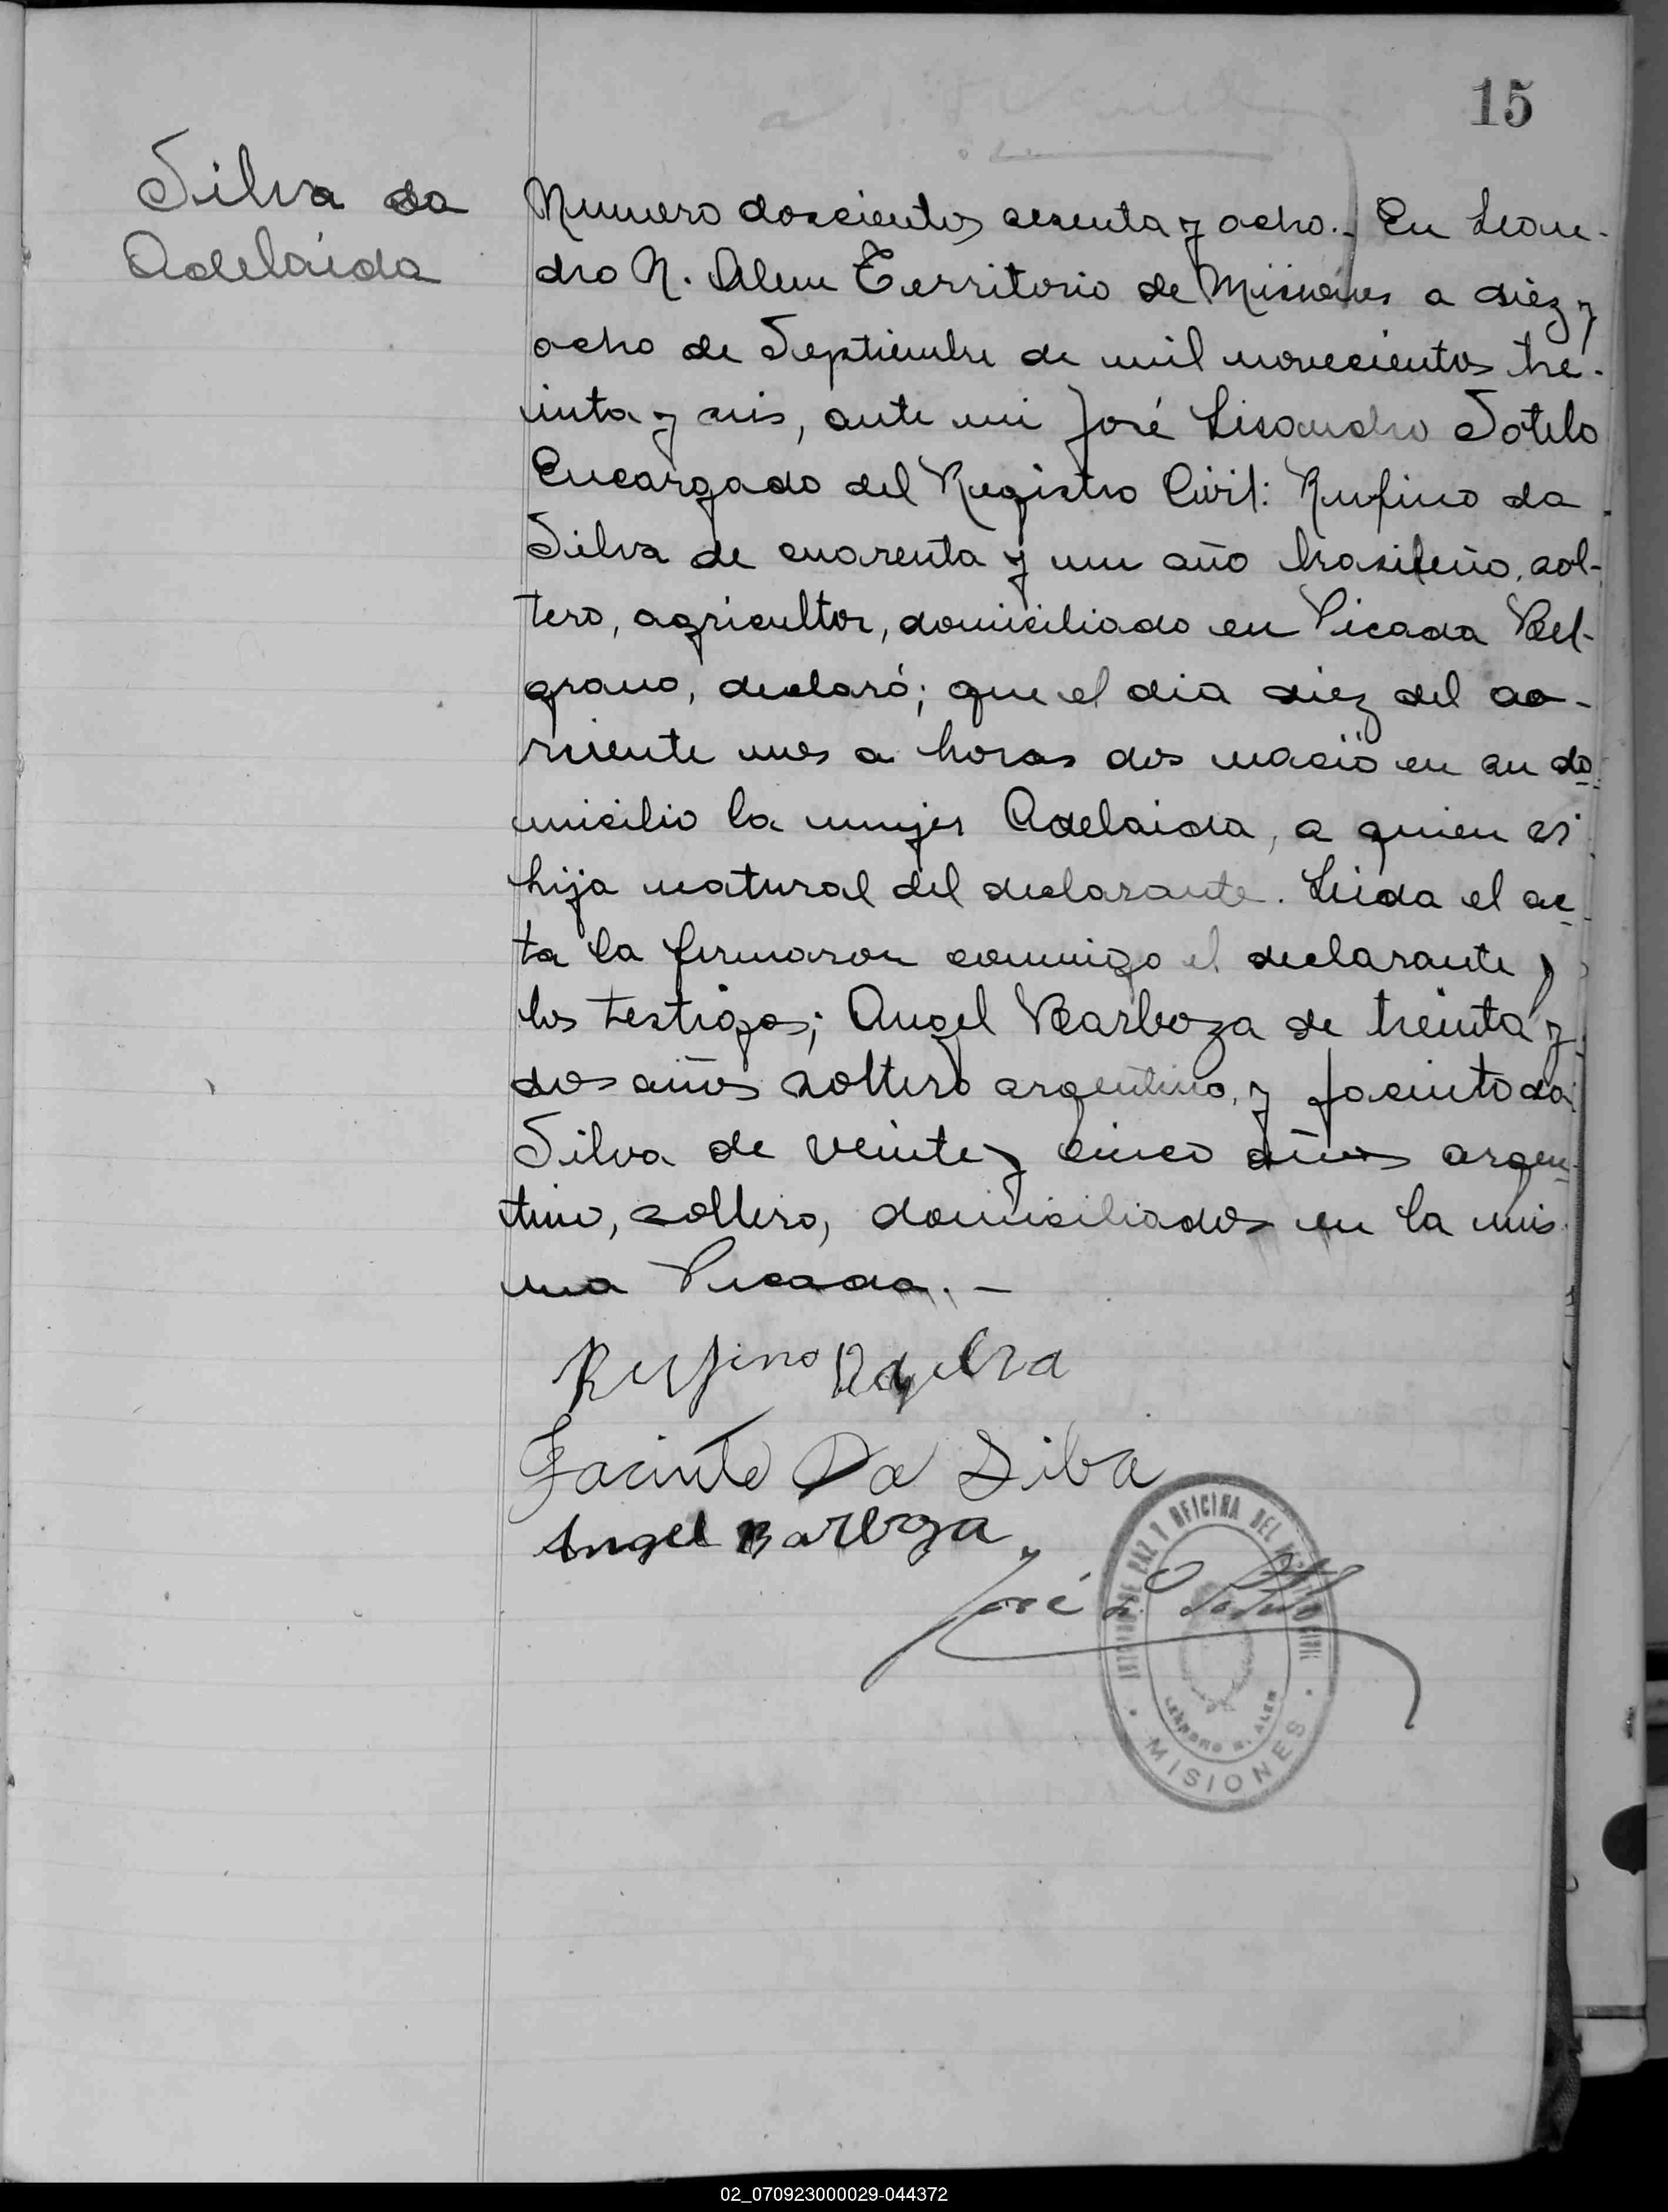 15
Silva da
Adelaida
Numero doscientos sesenta y ocho.- En Lean-
dro N. Alem Territorio de Misiones a diez y
ocho de Septiembre de mil novecientos tre-
inta y seis, ante mi José Lisandro Sotelo
Encargado del Registro Civil: Rufino da
Silva de cuarenta y un año brasileño, sol-
tero, agricultor, domiciliado en Picada Bel-
grano, declaró; que el dia diez del co-
rriente mes a horas dos nació en su do-
micilio la mujer Adelaida, a quien es
hija natural del declarante. Leida el ac-
ta la firmaron conmigo el declarante y
los testigos; Angel Barboza de treinta y
dos años soltero argentino, y Jacinto da
Silva de veinte y cinco años argen-
tino, soltero, domiciliados en la mis-
ma Picada.-
Rufino Da
Jacinto Da Silba
Angel Barboza
José L. Sotelo
DE PAZ Y OFICINA DEL CIVIL
LEANDRO N. ALEM
MISIONES
02_070923000029-044372